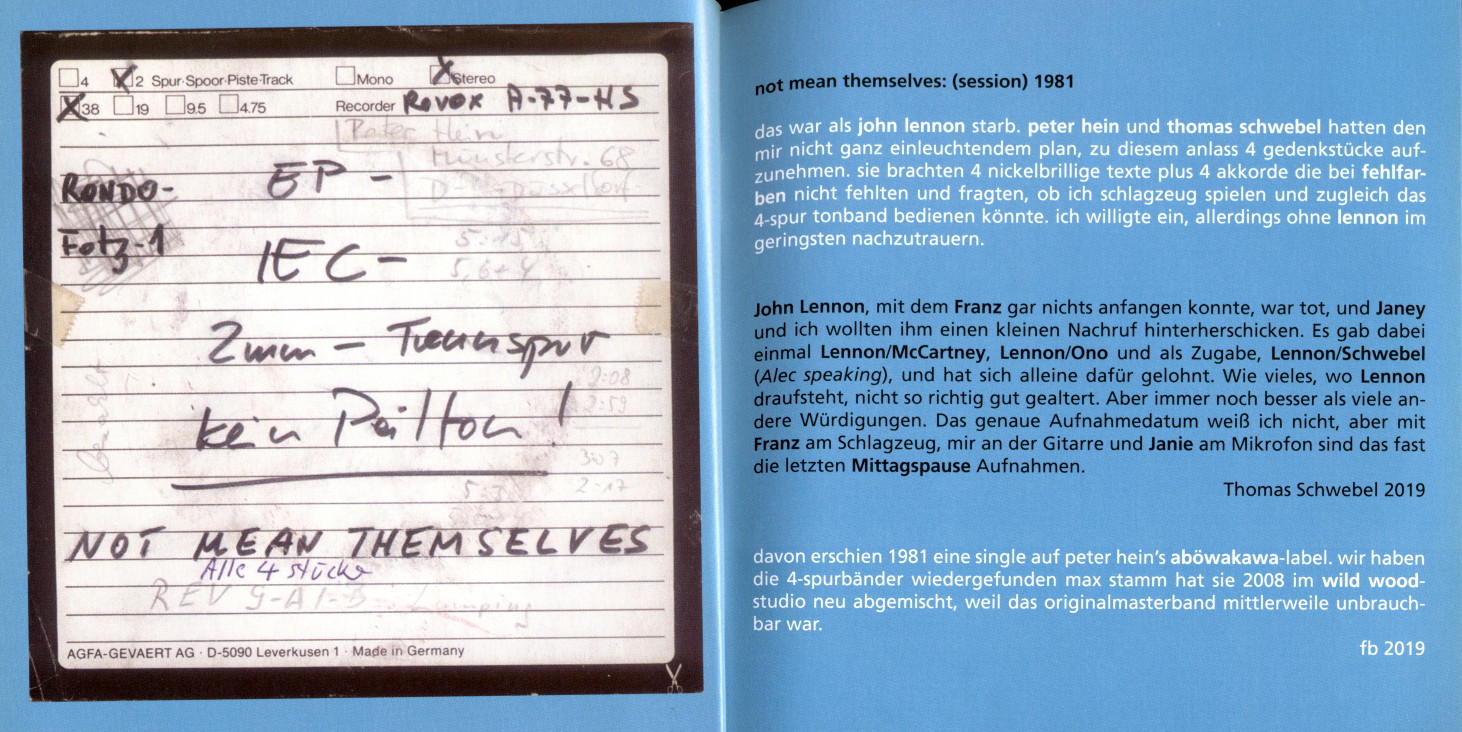 4 2 Spur·Spoor·Piste·Track Mono Stereo
38 19 9.5 4.75 Recorder REVOX A-77-HS
Peter Hein
Münsterstr. 68
RONDO- EP -
Fotz-1 5:15
IEC - 5,6+4
2mm - Trennspur
2:08
2:59
kein Pilton!
3:07
2:17
NOT MEAN THEMSELVES
Alle 4 stücke
AGFA-GEVAERT AG · D-5090 Leverkusen 1 · Made in Germany
not mean themselves: (session) 1981
das war als john lennon starb. peter hein und thomas schwebel hatten den
mir nicht ganz einleuchtendem plan, zu diesem anlass 4 gedenkstücke auf-
zunehmen. sie brachten 4 nickelbrillige texte plus 4 akkorde die bei fehlfar-
ben nicht fehlten und fragten, ob ich schlagzeug spielen und zugleich das
4-spur tonband bedienen könnte. ich willigte ein, allerdings ohne lennon im
geringsten nachzutrauern.
John Lennon, mit dem Franz gar nichts anfangen konnte, war tot, und Janey
und ich wollten ihm einen kleinen Nachruf hinterherschicken. Es gab dabei
einmal Lennon/McCartney, Lennon/Ono und als Zugabe, Lennon/Schwebel
(Alec speaking), und hat sich alleine dafür gelohnt. Wie vieles, wo Lennon
draufsteht, nicht so richtig gut gealtert. Aber immer noch besser als viele an-
dere Würdigungen. Das genaue Aufnahmedatum weiß ich nicht, aber mit
Franz am Schlagzeug, mir an der Gitarre und Janie am Mikrofon sind das fast
die letzten Mittagspause Aufnahmen.
Thomas Schwebel 2019
davon erschien 1981 eine single auf peter hein's aböwakawa-label. wir haben
die 4-spurbänder wiedergefunden max stamm hat sie 2008 im wild wood-
studio neu abgemischt, weil das originalmasterband mittlerweile unbrauch-
bar war.
fb 2019